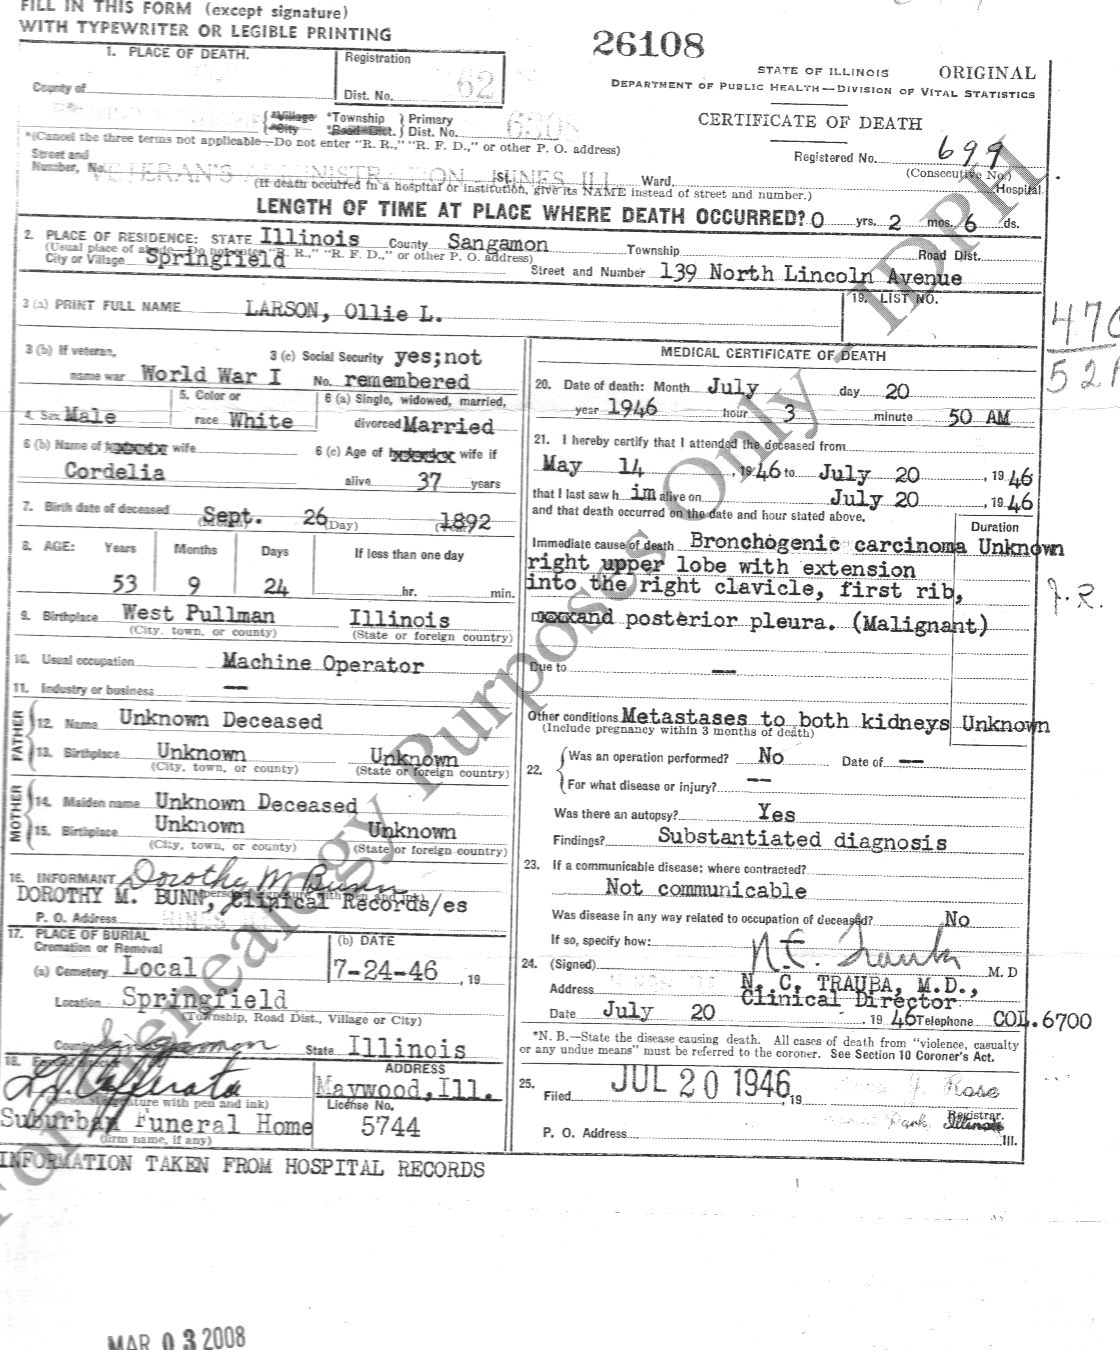 FILL IN THIS FORM (except signature)
WITH TYPEWRITER OR LEGIBLE PRINTING
26108
STATE OF ILLINOIS ORIGINAL
DEPARTMENT OF PUBLIC HEALTH—DIVISION OF VITAL STATISTICS
CERTIFICATE OF DEATH
Registered No. 699
(Consecutive No.)
1. PLACE OF DEATH.
Registration
Dist. No. 62
County of
*Village *Township Primary
*City *Road Dist. Dist. No.
*(Cancel the three terms not applicable—Do not enter "R. R.," "R. F. D.," or other P. O. address)
Street and
Number, No. VETERAN'S ADMINISTRATION HINES, ILL St. Ward. Hospital
(If death occurred in a hospital or institution, give its NAME instead of street and number.)
LENGTH OF TIME AT PLACE WHERE DEATH OCCURRED? 0 yrs. 2 mos. 6 ds.
2. PLACE OF RESIDENCE: STATE Illinois County Sangamon Township Road Dist.
(Usual place of abode—Do not enter "R. R.," "R. F. D.," or other P. O. address)
City or Village Springfield Street and Number 139 North Lincoln Avenue
3 (a) PRINT FULL NAME LARSON, Ollie L.
19. LIST NO.
476
3 (b) If veteran, name war World War I
3 (c) Social Security No. yes;not remembered
4. Sex Male
5. Color or race White
6 (a) Single, widowed, married, divorced Married
6 (b) Name of husband or wife Cordelia
6 (c) Age of husband or wife if alive 37 years
7. Birth date of deceased Sept. 26 1892
(Month) (Day) (Year)
8. AGE: Years Months Days If less than one day
53 9 24 hr. min.
9. Birthplace West Pullman Illinois
(City, town, or county) (State or foreign country)
10. Usual occupation Machine Operator
11. Industry or business —
FATHER
12. Name Unknown Deceased
13. Birthplace Unknown Unknown
(City, town, or county) (State or foreign country)
MOTHER
14. Maiden name Unknown Deceased
15. Birthplace Unknown Unknown
(City, town, or county) (State or foreign country)
16. INFORMANT Dorothy M Bunn
(personal signature with pen and ink)
DOROTHY M. BUNN, Clinical Records/es
P. O. Address HINES
17. PLACE OF BURIAL
Cremation or Removal
(b) DATE
(a) Cemetery Local 7-24-46, 19
Location Springfield
(Township, Road Dist., Village or City)
County Sangamon State Illinois
18.
ADDRESS
Maywood, Ill.
(personal signature with pen and ink)
License No.
Suburban Funeral Home 5744
(firm name, if any)
INFORMATION TAKEN FROM HOSPITAL RECORDS
MEDICAL CERTIFICATE OF DEATH
20. Date of death: Month July day 20
year 1946 hour 3 minute 50 AM
21. I hereby certify that I attended the deceased from
May 14, 1946 to July 20, 1946
that I last saw h im alive on July 20, 1946
and that death occurred on the date and hour stated above.
Duration
Immediate cause of death Bronchogenic carcinoma Unknown
right upper lobe with extension
into the right clavicle, first rib,
J.R.
and posterior pleura. (Malignant)
Due to —
Other conditions Metastases to both kidneys Unknown
(Include pregnancy within 3 months of death)
22. Was an operation performed? No Date of —
For what disease or injury? —
Was there an autopsy? Yes
Findings? Substantiated diagnosis
23. If a communicable disease; where contracted?
Not communicable
Was disease in any way related to occupation of deceased? No
If so, specify how:
24. (Signed) N. C. Trauba M. D
Address N. C. TRAUBA, M.D.,
Clinical Director
Date July 20, 1946 Telephone COL.6700
*N. B.—State the disease causing death. All cases of death from "violence, casualty
or any undue means" must be referred to the coroner. See Section 10 Coroner's Act.
25. Filed JUL 20 1946, 19 J. Rose
Registrar.
P. O. Address Park, Illinois Ill.
For Genealogy Purposes Only - IDPH
MAR 03 2008